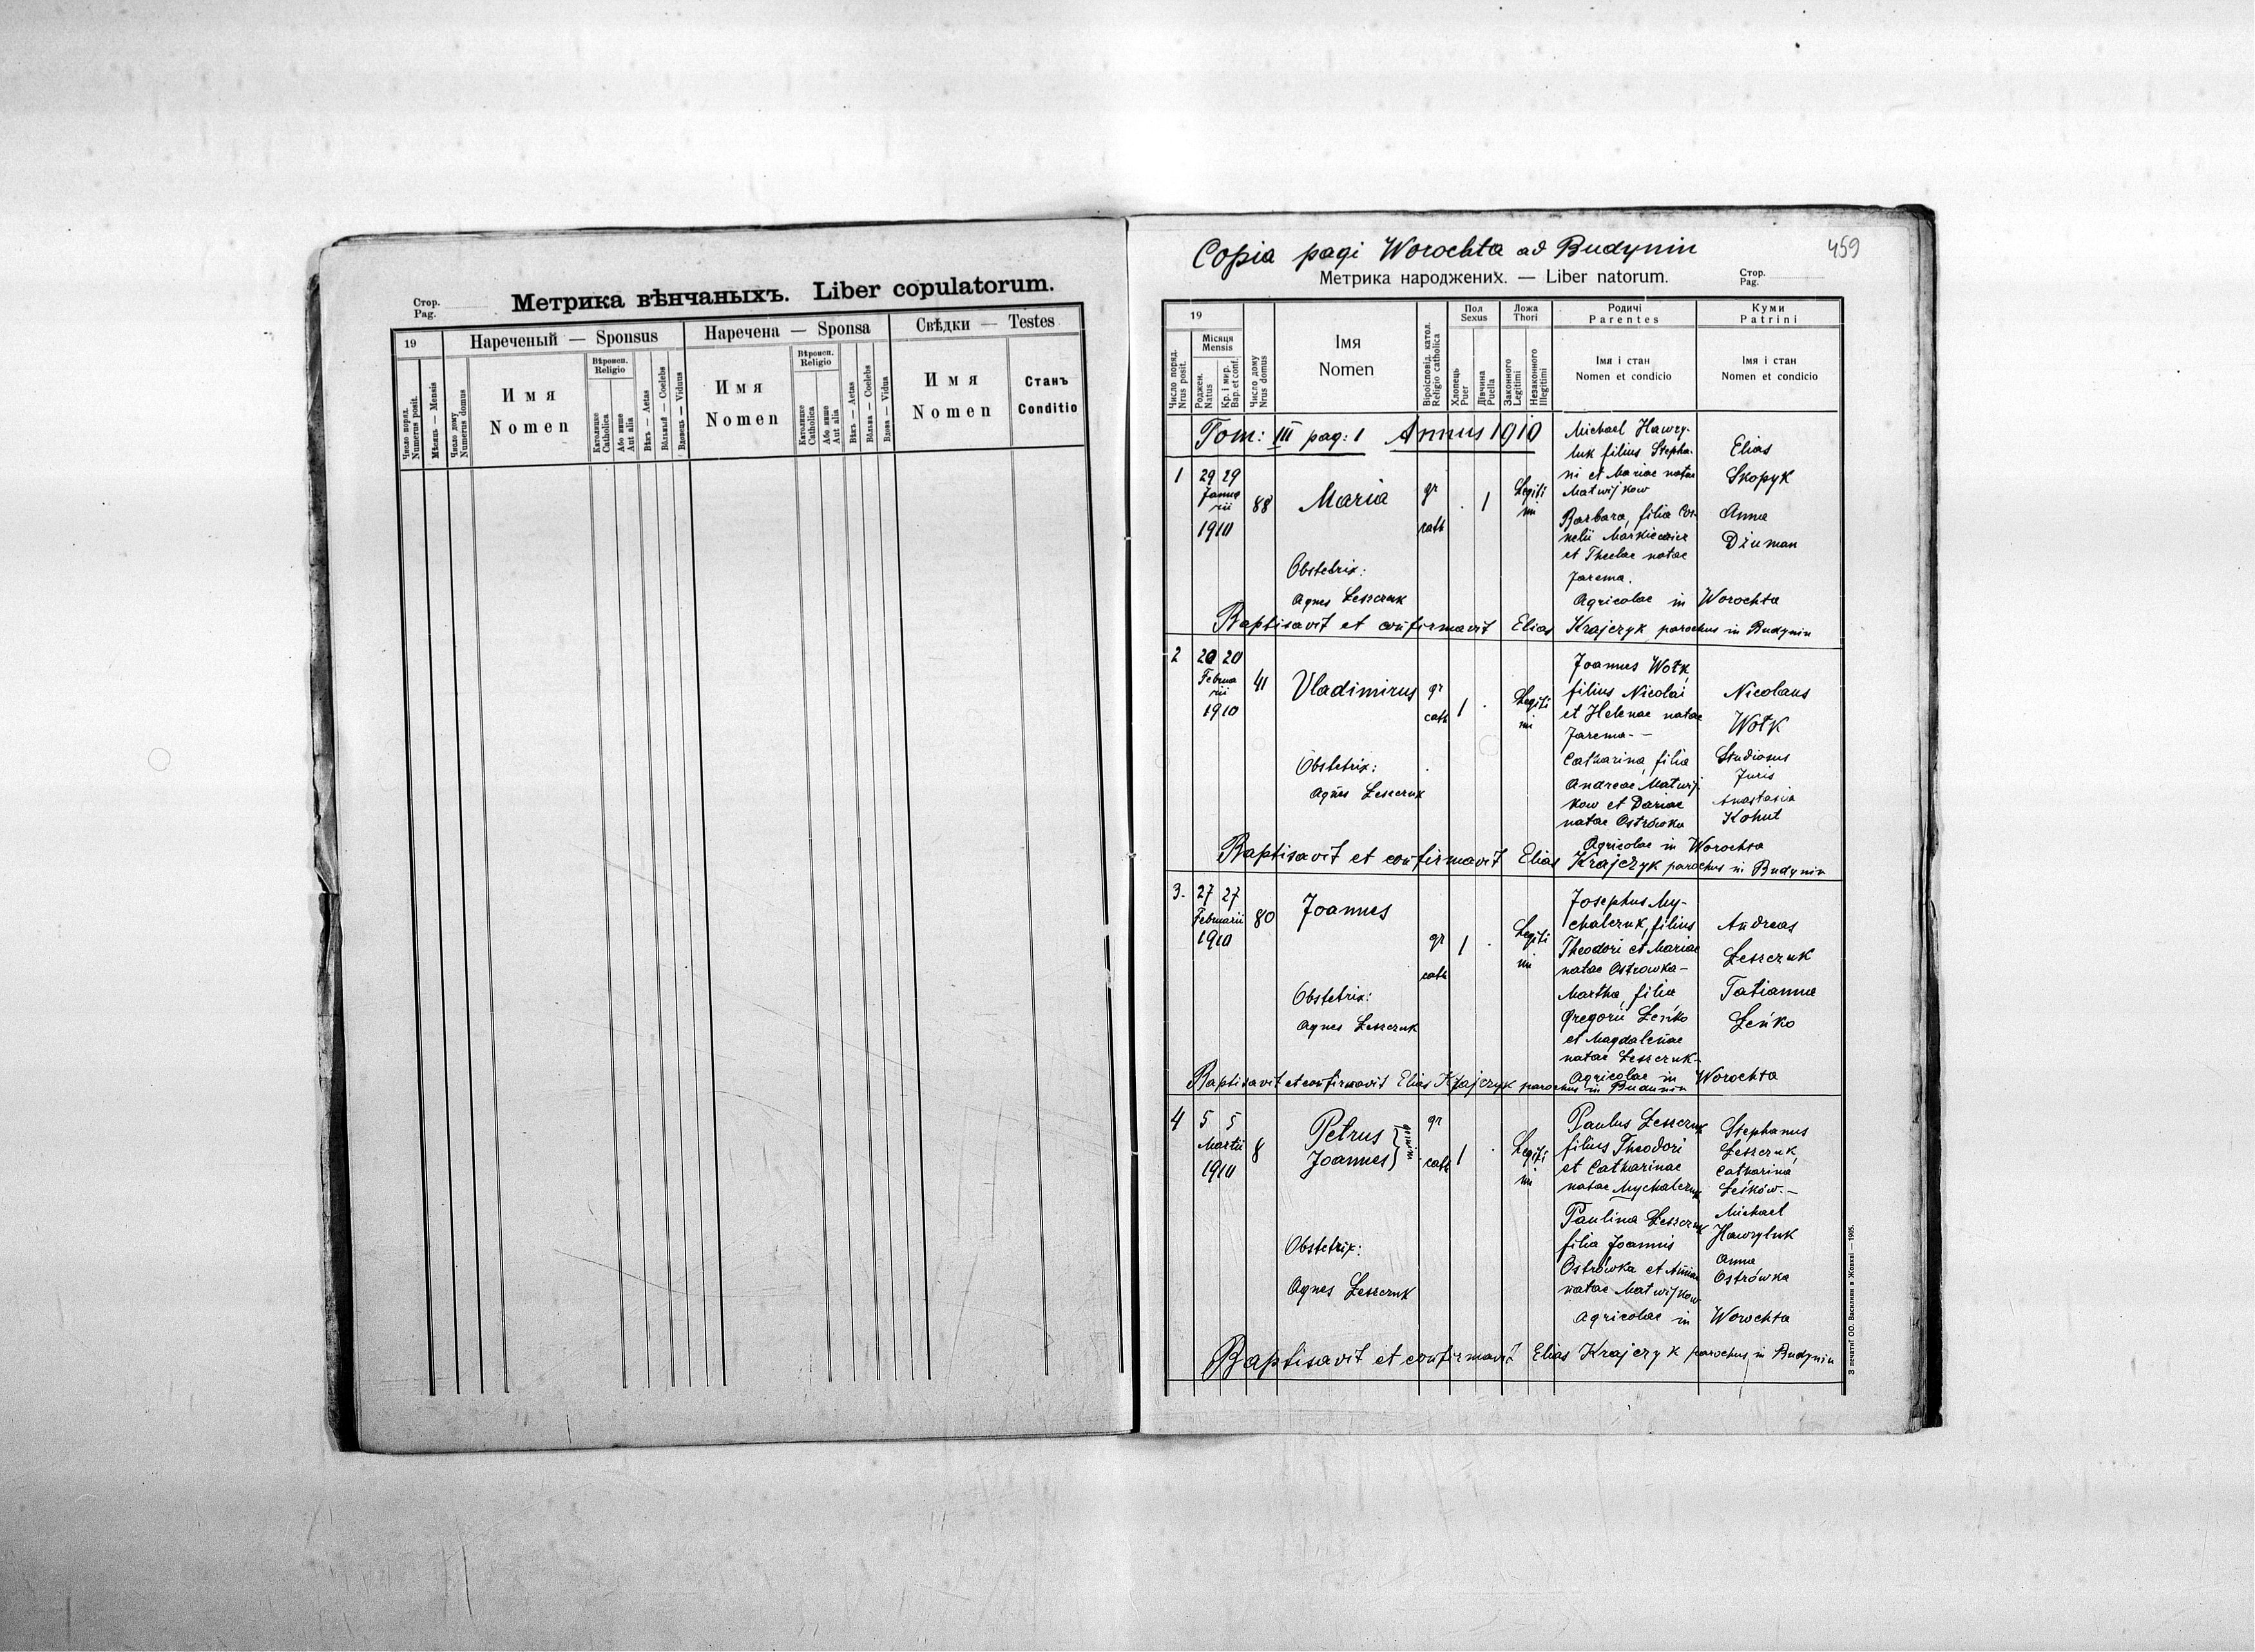 Стор.
Pag.
Метрика вѣнчаныхъ. Liber copulatorum.
19
Нареченый — Sponsus
Наречена — Sponsa
Свѣдки — Testes
Число поряд.
Numerus posit.
Мѣсяць — Mensis
Число дому
Numerus domus
Имя
Nomen
Вѣроисп.
Religio
Католицке
Catholica
Або инше
Aut alia
Вѣкъ — Aetas
Вôльный — Coelebs
Вдовець — Viduus
Имя
Nomen
Вѣроисп.
Religio
Католицке
Catholica
Або инше
Aut alia
Вѣкъ — Aetas
Вôльна — Coelebs
Вдова — Vidua
Имя
Nomen
Станъ
Conditio
Copia pagi Worochta ad Budynin
459
Метрика народжених. — Liber natorum.
Стор.
Pag.
19
Число поряд.
Nrus posit.
Місяця
Mensis
Роджен.
Natus
Кр. і мир.
Bap. et conf.
Число дому
Nrus domus
Імя
Nomen
Віроісповід. катол.
Religio catholica
Пол
Sexus
Хлопець
Puer
Дівчина
Puella
Ложа
Thori
Законного
Legitimi
Незаконного
Illegitimi
Родичі
Parentes
Імя і стан
Nomen et condicio
Куми
Patrini
Імя і стан
Nomen et condicio
Tom: III pag: 1 Annus 1910
1
29 29
Janua
rii
1910
88
Maria
gr
cath
. 1
Legiti
mi
Michael Hawry-
luk filius Stepha-
ni et Mariae natae
Matwijkow
Barbara, filia Cor-
nelii Markiewicz
et Theclae natae
Jarema.
Agricolae in Worochta
Elias
Skopyk
Anna
Dżuman
Obstetrix:
Agnes Leszczuk
Baptisavit et confirmavit Elias Krajczyk parochus in Budynin
2
20 20
Februa
rii
1910
41
Vladimirus
gr
cath
1 .
Legiti
mi
Joannes Wołk,
filius Nicolai
et Helenae natae
Jarema--
Catharina, filia
Andreae Matwij-
kow et Dariae
natae Ostrówka
Agricolae in Worochta
Nicolaus
Wołk
Studiosus
Juris
Anastasia
Kohut
Obstetrix:
Agnes Leszczuk
Baptisavit et confirmavit Elias Krajczyk parochus in Budynin
3.
27 27
Februarii
1910
80
Joannes
gr
cath
1 .
Legiti
mi
Josephus My-
chalczuk, filius
Theodori et Mariae
natae Ostrowka-
Martha, filia
Gregorii Leńko
et Magdalenae
natae Leszczuk-
Agricolae in Worochta
Andreas
Leszczuk
Tatianna
Leńko
Obstetrix:
Agnes Leszczuk
Baptisavit et confirmavit Elias Krajczyk parochus in Budynin
4
5 5
Martii
1910
8
Petrus
Joannes
gr
cath
1 .
Legiti
mi
Paulus Leszczuk
filius Theodori
et Catharinae
natae Mychalczuk
Paulina Leszczuk
filia Joannis
Ostrówka et Annae
natae Matwijkow
Agricolae in Worochta
Stephanus
Leszczuk,
Catharina
Leśków.-
Michael
Hawryluk
Anna
Ostrówka
Obstetrix:
Agnes Leszczuk
Baptisavit et confirmavit Elias Krajczyk parochus in Budynin
З печатні ОО. Василиян в Жовкві — 1905.